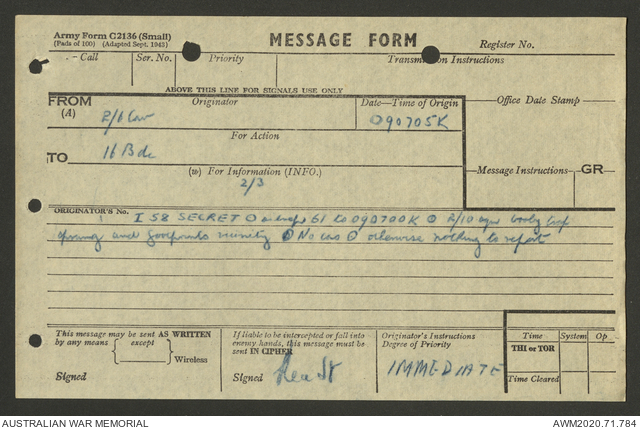 Army Form C2136 (Small)
(Pads of 100) (Adapted Sept. 1943)
MESSAGE FORM
Register No.
Call
Ser. No.
Priority
Transmission Instructions
ABOVE THIS LINE FOR SIGNALS USE ONLY
FROM
(A)
Originator
Date—Time of Origin
Office Date Stamp
2/6 Cav
090705K
For Action
TO
16 Bde
(w) For Information (INFO.)
Message Instructions
GR
2/3
ORIGINATOR'S No.
I 58 SECRET O 61 to 090700K O 2/10 booby trap
sprung and footprints vicinity O No cas O otherwise nothing to report
This message may be sent AS WRITTEN
by any means except
Wireless
Signed
If liable to be intercepted or fall into
enemy hands, this message must be
sent IN CIPHER
Signed
Originator's Instructions
Degree of Priority
IMMEDIATE
Time
System
Op
THI or TOR
Time Cleared
AUSTRALIAN WAR MEMORIAL
AWM2020.71.784